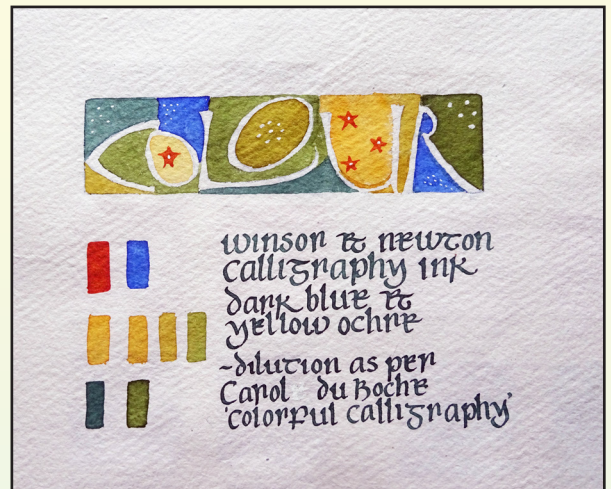 COLOUR
winsor & newton
calligraphy ink
dark blue &
yellow ochre
~dilution as per
Carol duBoche
'colorful calligraphy'